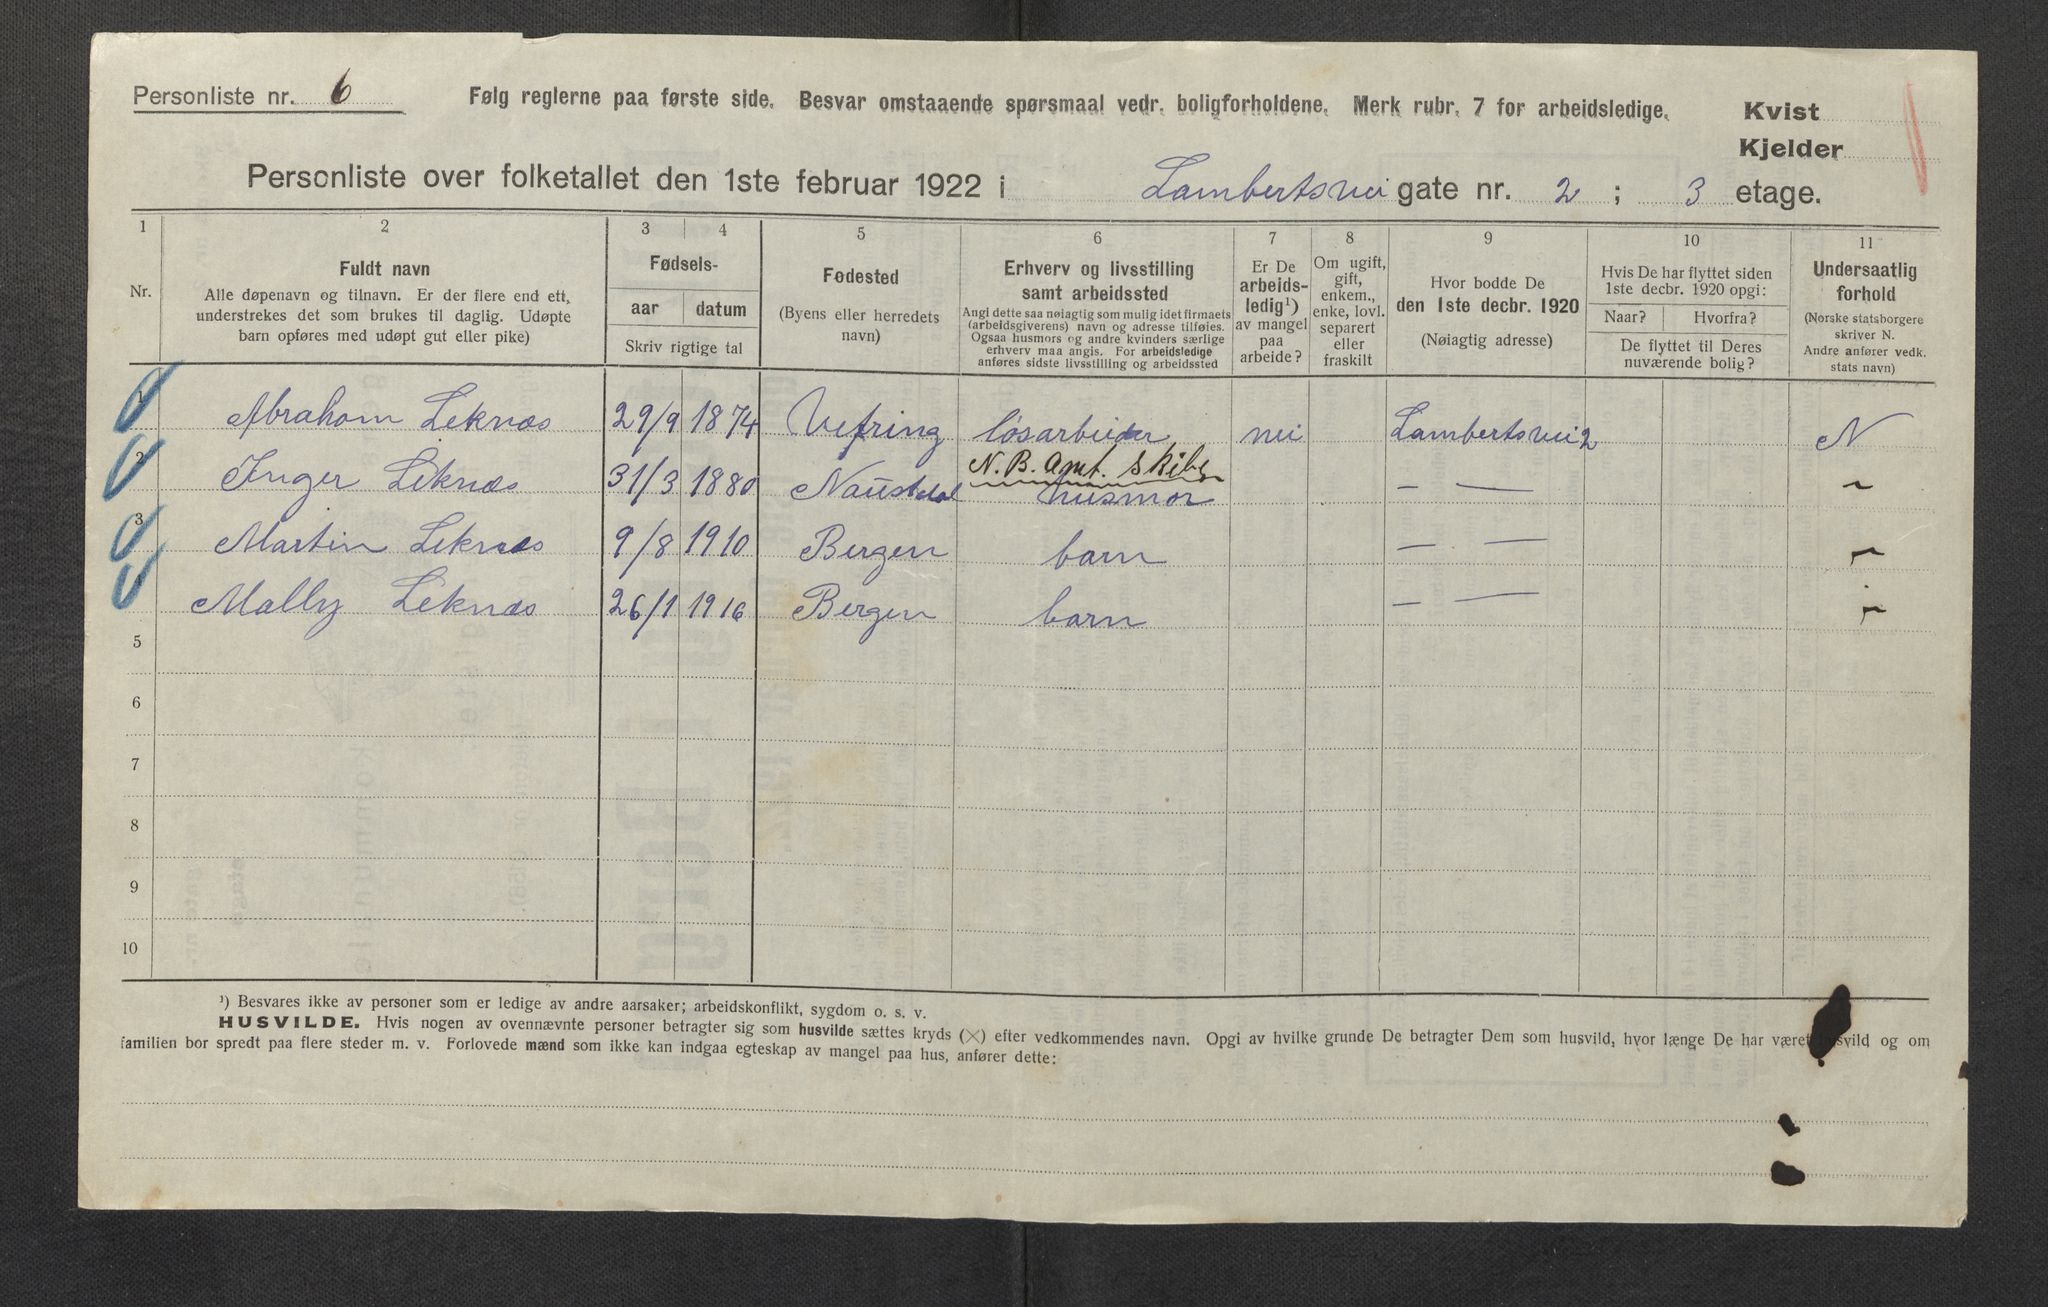 Personliste nr. 6
Følg reglerne paa første side. Besvar omstaaende spørsmaal vedr. boligforholdene. Merk rubr. 7 for arbeidsledige.
Kvist
Kjelder
Personliste over folketallet den 1ste februar 1922 i Lambertsvei gate nr. 2 ; 3 etage.
1 2 3 4 5 6 7 8 9 10 11
Nr.
Fuldt navn
Alle døpenavn og tilnavn. Er der flere end ett,
understrekes det som brukes til daglig. Udøpte
barn opføres med udøpt gut eller pike)
Fødsels-
aar datum
Skriv rigtige tal
Fødested
(Byens eller herredets
navn)
Erhverv og livsstilling
samt arbeidssted
Angi dette saa nøiagtig som mulig idet firmaets
(arbeidsgiverens) navn og adresse tilføies.
Ogsaa husmors og andre kvinders særlige
erhverv maa angis. For arbeidsledige
anføres sidste livsstilling og arbeidssted
Er De
arbeids-
ledig¹)
av mangel
paa
arbeide?
Om ugift,
gift,
enkem.,
enke, lovl.
separert
eller
fraskilt
Hvor bodde De
den 1ste decbr. 1920
(Nøiagtig adresse)
Hvis De har flyttet siden
1ste decbr. 1920 opgi:
Naar? Hvorfra?
De flyttet til Deres
nuværende bolig?
Undersaatlig
forhold
(Norske statsborgere
skriver N.
Andre anfører vedk.
stats navn)
1 Abraham Leknæs 29/9 1874 Vefring løsarbeider nei Lambertsvei 2 N
N. B. Amt. Skibs
2 Inger Leknæs 31/3 1880 Naustdal husmor — — "
3 Martin Leknæs 9/8 1910 Bergen barn — — "
Mally Leknæs 26/1 1916 Bergen barn — — "
5
6
7
8
9
10
¹) Besvares ikke av personer som er ledige av andre aarsaker; arbeidskonflikt, sygdom o. s. v.
HUSVILDE. Hvis nogen av ovennævnte personer betragter sig som husvilde sættes kryds (×) efter vedkommendes navn. Opgi av hvilke grunde De betragter Dem som husvild, hvor længe De har været husvild og om
familien bor spredt paa flere steder m. v. Forlovede mænd som ikke kan indgaa egteskap av mangel paa hus, anfører dette: